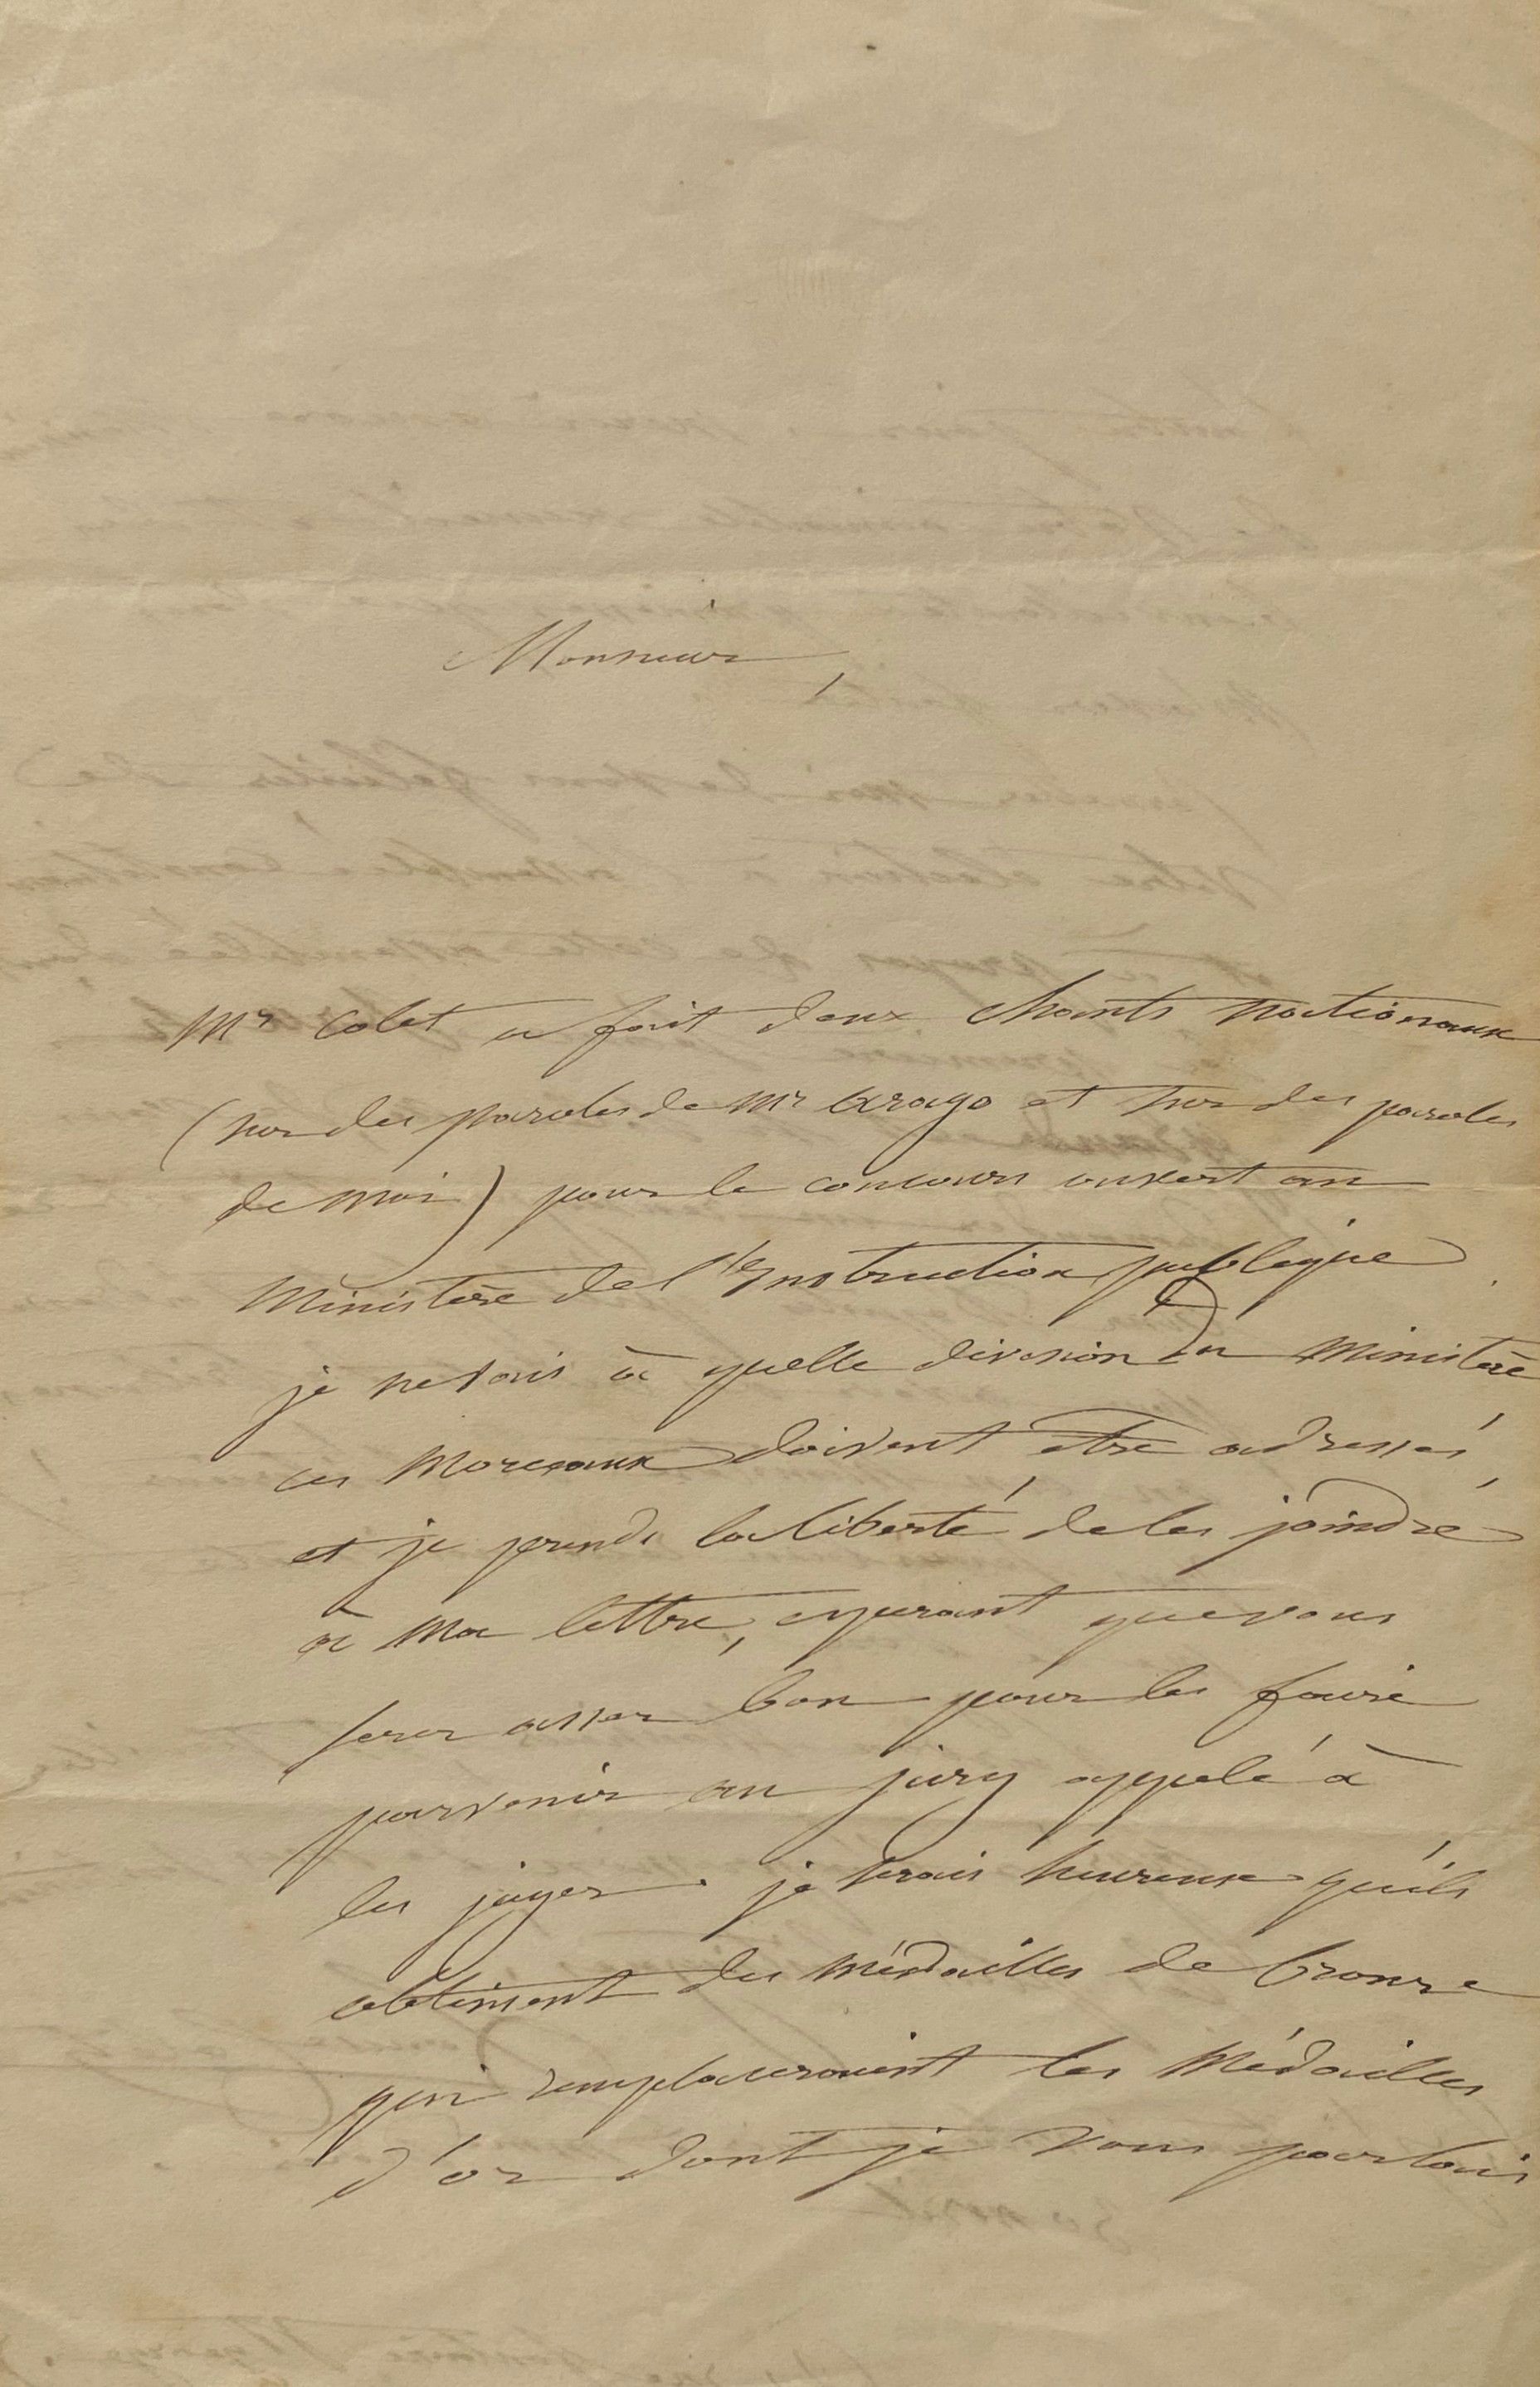 Monsieur,
Mr Colet a fait deux chants nationaux
(sur des paroles de Mr Arago et sur des paroles
de moi) pour le concours ouvert au
Ministère de l'Instruction publique
je ne sais à quelle division du Ministère
ces morceaux doivent être adressés,
et je prends la liberté de les joindre
à ma lettre, espérant que vous
serez assez bon pour les faire
parvenir au jury appelé à
les juger. je serais heureuse qu'ils
obtinssent des médailles de bronze
qui remplaceraient les médailles
d'or dont je vous parlais